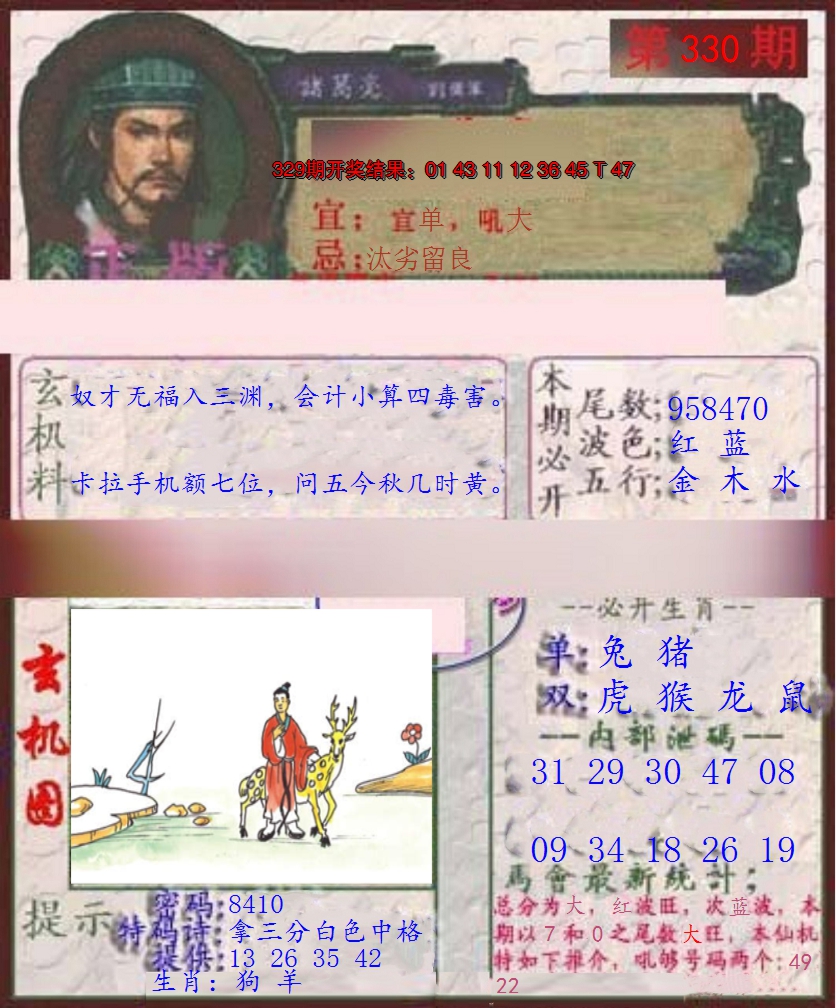 第 330 期
諸葛亮
329期开奖结果：01 43 11 12 36 45 T 47
宜：宜单，吼大
忌：汰劣留良
正版
玄机料
奴才无福入三渊，会计小算四毒害。
卡拉手机额七位，问五今秋几时黄。
本期必开
尾数：958470
波色：红 蓝
五行：金 木 水
--必开生肖--
单：兔 猪
双：虎 猴 龙 鼠
--内部泄碼--
31 29 30 47 08
09 34 18 26 19
玄机图
馬會最新統計；
总分为大，红波旺，次蓝波，本
期以7和0之尾数大旺，本仙机
特如下推介，吼够号码两个:49
22
提示
密码:8410
特码诗:拿三分白色中格
提供:13 26 35 42
生肖：狗 羊